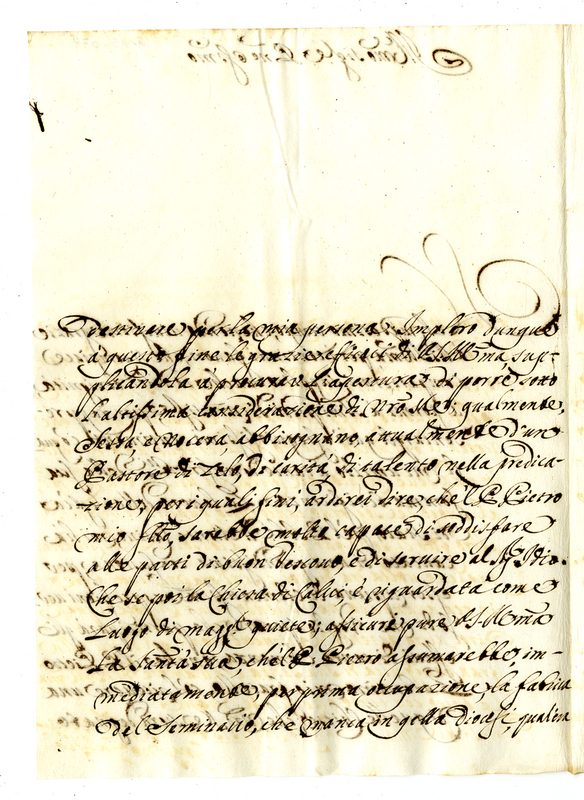 Drestivare per la mia persona. Imploro dunque
à questo fine le grazie efficaci di V.S. Ill.ma, sup-
plicandola à procurar l'apertura di porre sotto
l'altissima considerazione di Nro. Sre., qualmente,
Sessa, e Nocera abbisognano, attualmente d'un
Pastore di Zelo, di carità, di talento, nella predica-
zione, per i quali fini, ardirei dire, che 'l P. Pietro
mio fllo, sarebbe molto capace di soddisfare
alle parti di buon Vescovo, e di servire al Sig. Idio.
Che se poi la Chiesa di Calvi è riguardata come
Luogo di magg. quiete; assicuri pure V.S. Ill.ma
La Santà sua, che 'l P. Pietro assumarebbe im-
mediatamente per prima occupazione, la fabrica
del Seminario, che manca in qella Diocesi, qualora